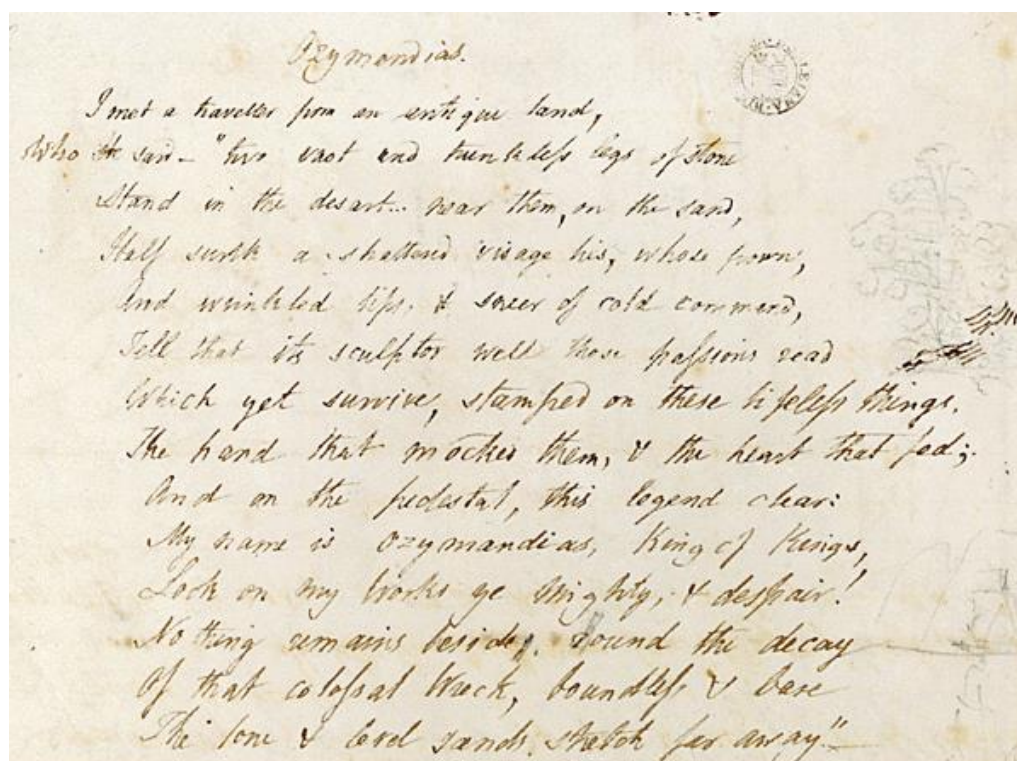 Ozymandias.
I met a traveller from an antique land,
Who said — "two vast and trunkless legs of stone
Stand in the desart... near them, on the sand,
Half sunk a shattered visage lies, whose frown,
And wrinkled lips, & sneer of cold command,
Tell that its sculptor well those passions read
Which yet survive, stamped on these lifeless things,
The hand that mocked them, & the heart that fed;
And on the pedestal, this legend clear:
My name is Ozymandias, King of Kings,
Look on my works ye Mighty, & despair!
No thing remains beside. Round the decay
Of that colossal Wreck, boundless & bare
The lone & level sands stretch far away."—